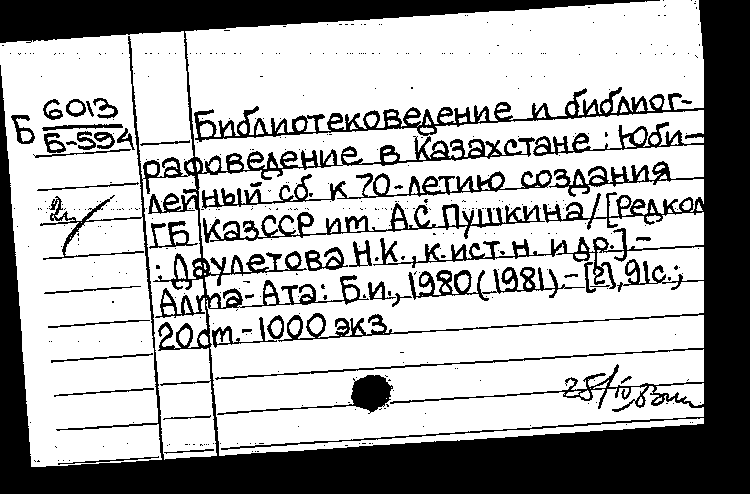 Б 6013
Б-594
2н
Библиотековедение и библиог-
рафоведение в Казахстане : Юби-
лейный сб. к 70-летию создания
ГБ КазССР им. А.С. Пушкина / [Редкол
: Даулетова Н.К., к.ист.н. и др.].-
Алма-Ата: Б.и., 1980 (1981).- [2], 91с.;
20 см.- 1000 экз.
25/IV 83